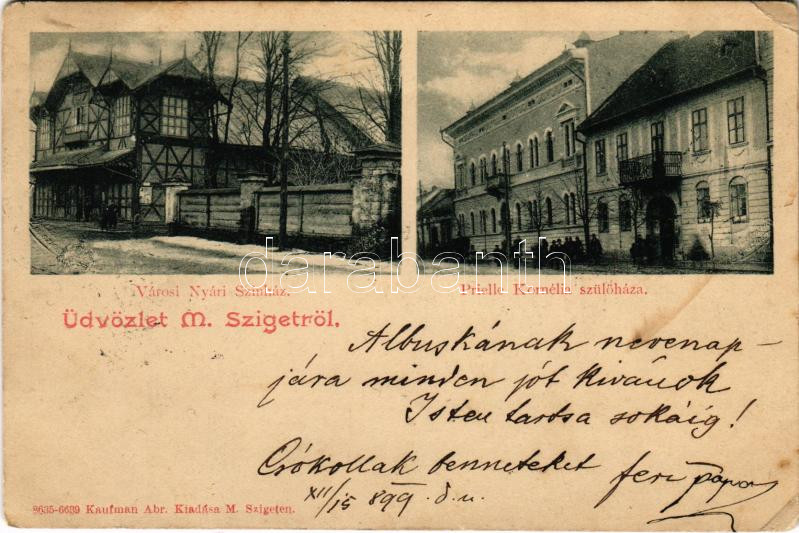 Városi Nyári Színház.
Prielle Kornélia szülőháza.
Üdvözlet M. Szigetről.
darabanth
Albuskának nevenap-
jára minden jót kivánok
Isten tartsa sokáig!
Csókollak benneteket feri
XII/15 899. d.u.
8635-6639 Kaufman Abr. Kiadása M. Szigeten.